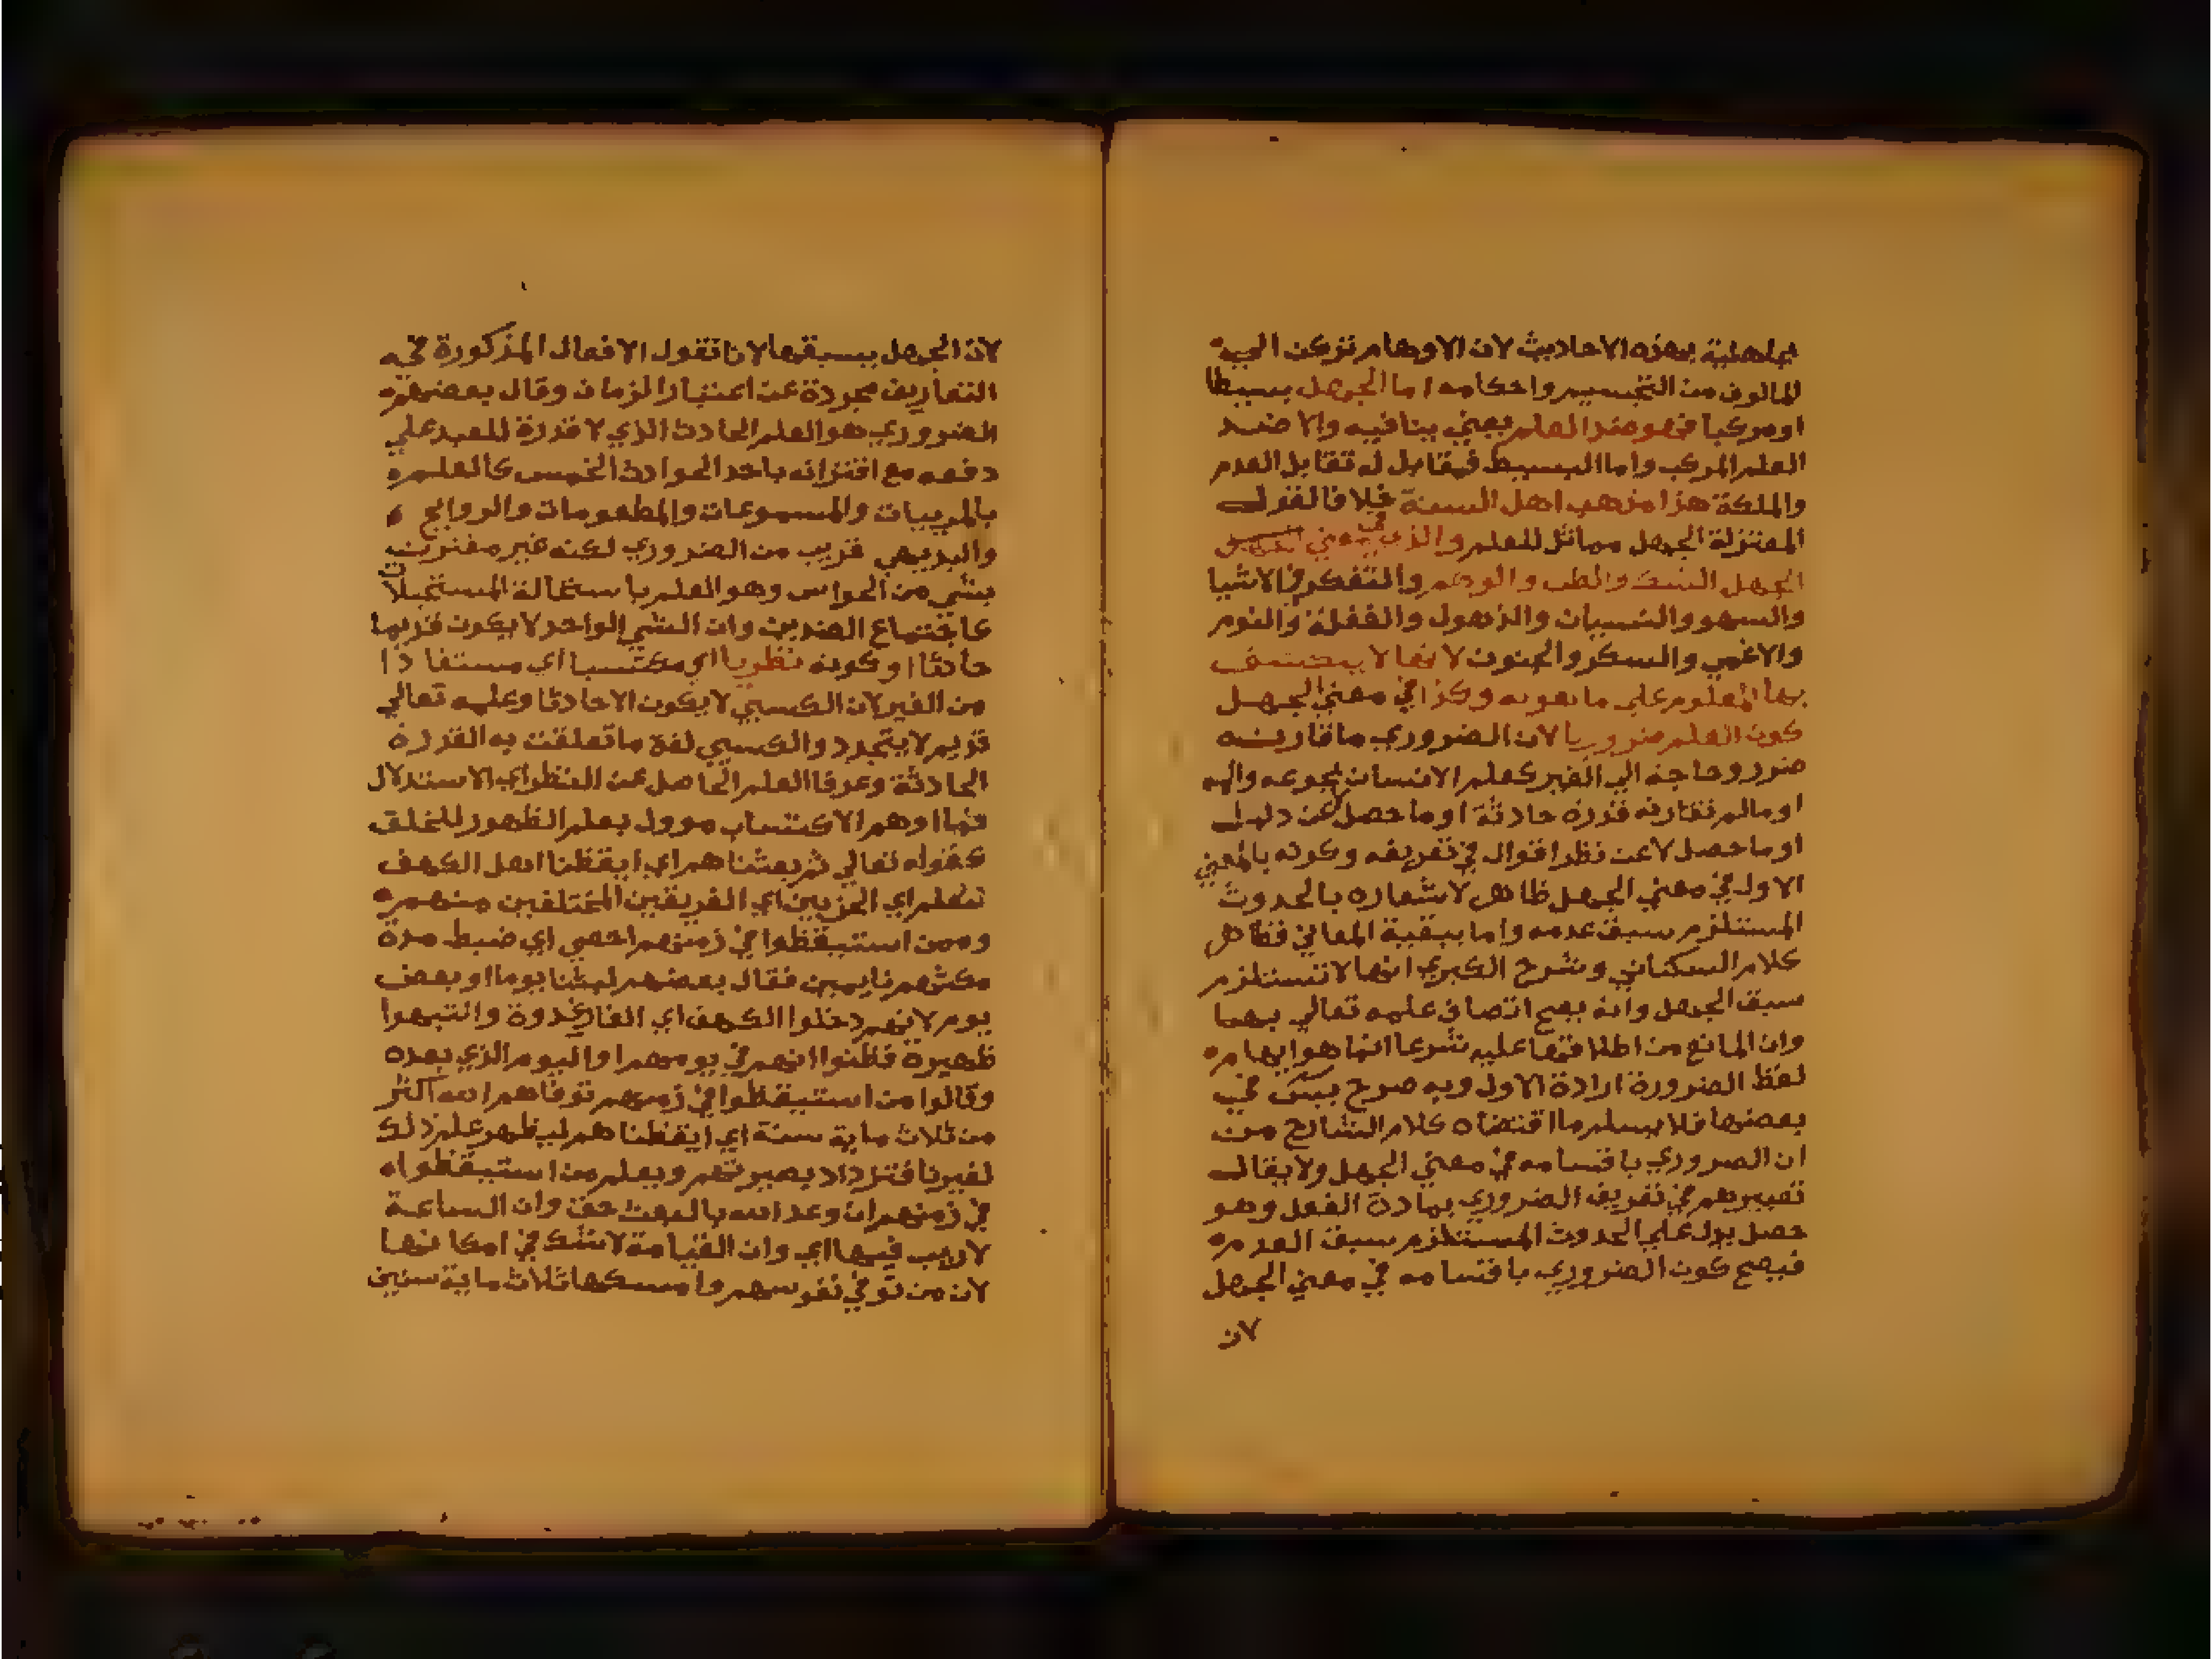 بجاهلية بهذه الاحاديث لان الاوهام تركن الي
المالوف من التجسيم واحكامه اما الجهل بسيطا
او مركبا فهو ضد العلم بمعني ينافيه والا ضد
العلم المركب واما البسيط فيقابل له تقابل العدم
والملكة هذا مذهب اهل السنة خلافا لقول
المعتزلة الجهل مماثل للعلم والذي في معني
الجهل الشك والظن والوهم والتفكر في الاشيا
والسهو والنسيان والذهول والغفلة والنوم
والاغمي والسكر والجنون لانها لا ينكشف
بها المعلوم علي ما هو به وكذا في معني الجهل
كون العلم ضروريا لان الضروري ما قارنه
ضرر وحاجة الي الغير كعلم الانسان بجوعه والمه
او مالم تقارنه قدرة حادثة او ما حصل لا عن دليل
او ما حصل لا عن نظر اقوال في تعريفه وكونه بالمعني
الاول في معني الجهل ظاهر لاشعاره بالحدوث
المستلزم سبق عدمه واما ببقية المعاني فظاهر
كلام السكتاني وشرح الكبري انها لا تستلزم
سبق الجهل وانه يصح اتصاف علمه تعالي بهما
وان المانع من اطلاقها عليه شرعا انما هو ايهام
لفظ الضرورة ارادة الاول وبه صرح يس في
بعضها فلا يسلم ما اقتضاه كلام الشارح من
ان الضروري باقسامه في معني الجهل ولا يقال
تعبيرهم في تعريف الضروري بمادة الفعل وهو
حصل يدل علي الحدوث المستلزم سبق العدم
فيصح كون الضروري باقسامه في معني الجهل
لان
لان الجهل يسبقها لانا نقول الافعال المذكورة في
التعاريف مجردة عن اعتبار الزمان وقال بعضهم
الضروري هو العلم الحادث الذي لا قدرة للعبد علي
دفعه مع اقترانه باحد الحوادث الخمس كالعلم
بالمرييات والمسموعات والمطعومات والروايح
والبديهي قريب من الضروري لكنه غير مقترن
بشي من الحواس وهو العلم باستحالة المستحيلات
كاجتماع الضدين وان الشي الواحد لا يكون قديما
حادثا او كونه نظريا اي مكتسبا اي مستفادا
من الغير لان الكسبي لا يكون الا حادثا وعلمه تعالي
قديم لا يتجدد والكسبي لغة ما تعلقت به القدرة
الحادثة وعرفا العلم الحاصل عن النظر اي الاستدلال
فما اوهم الاكتساب موول بعلم الظهور للخلق
كقوله تعالي ثم بعثناهم اي ايقظنا اهل الكهف
لنعلم اي الحزبين اي الفريقين المختلفين منهم
وممن استيقظوا في زمنهم احصي اي ضبط مدة
مكثهم نايمين فقال بعضهم لبثنا يوما او بعض
يوم لانهم دخلوا الكهف اي الغار غدوة وانتبهوا
ظهيرة فظنوا انهم في يومهم او اليوم الذي بعده
وقالوا من استيقظوا في زمنهم توفاهم الله اكثر
من ثلاث ماية سنة اي ايقظناهم ليظهر علم ذلك
لغيرنا فتزداد بصيرتهم ويعلم من استيقظوا
في زمنهم ان وعد الله بالبعث حق وان الساعة
لا ريب فيها اي وان القيامة لا شك في امكانها
لان من توفي نفوسهم وامسكها ثلاث ماية سنين